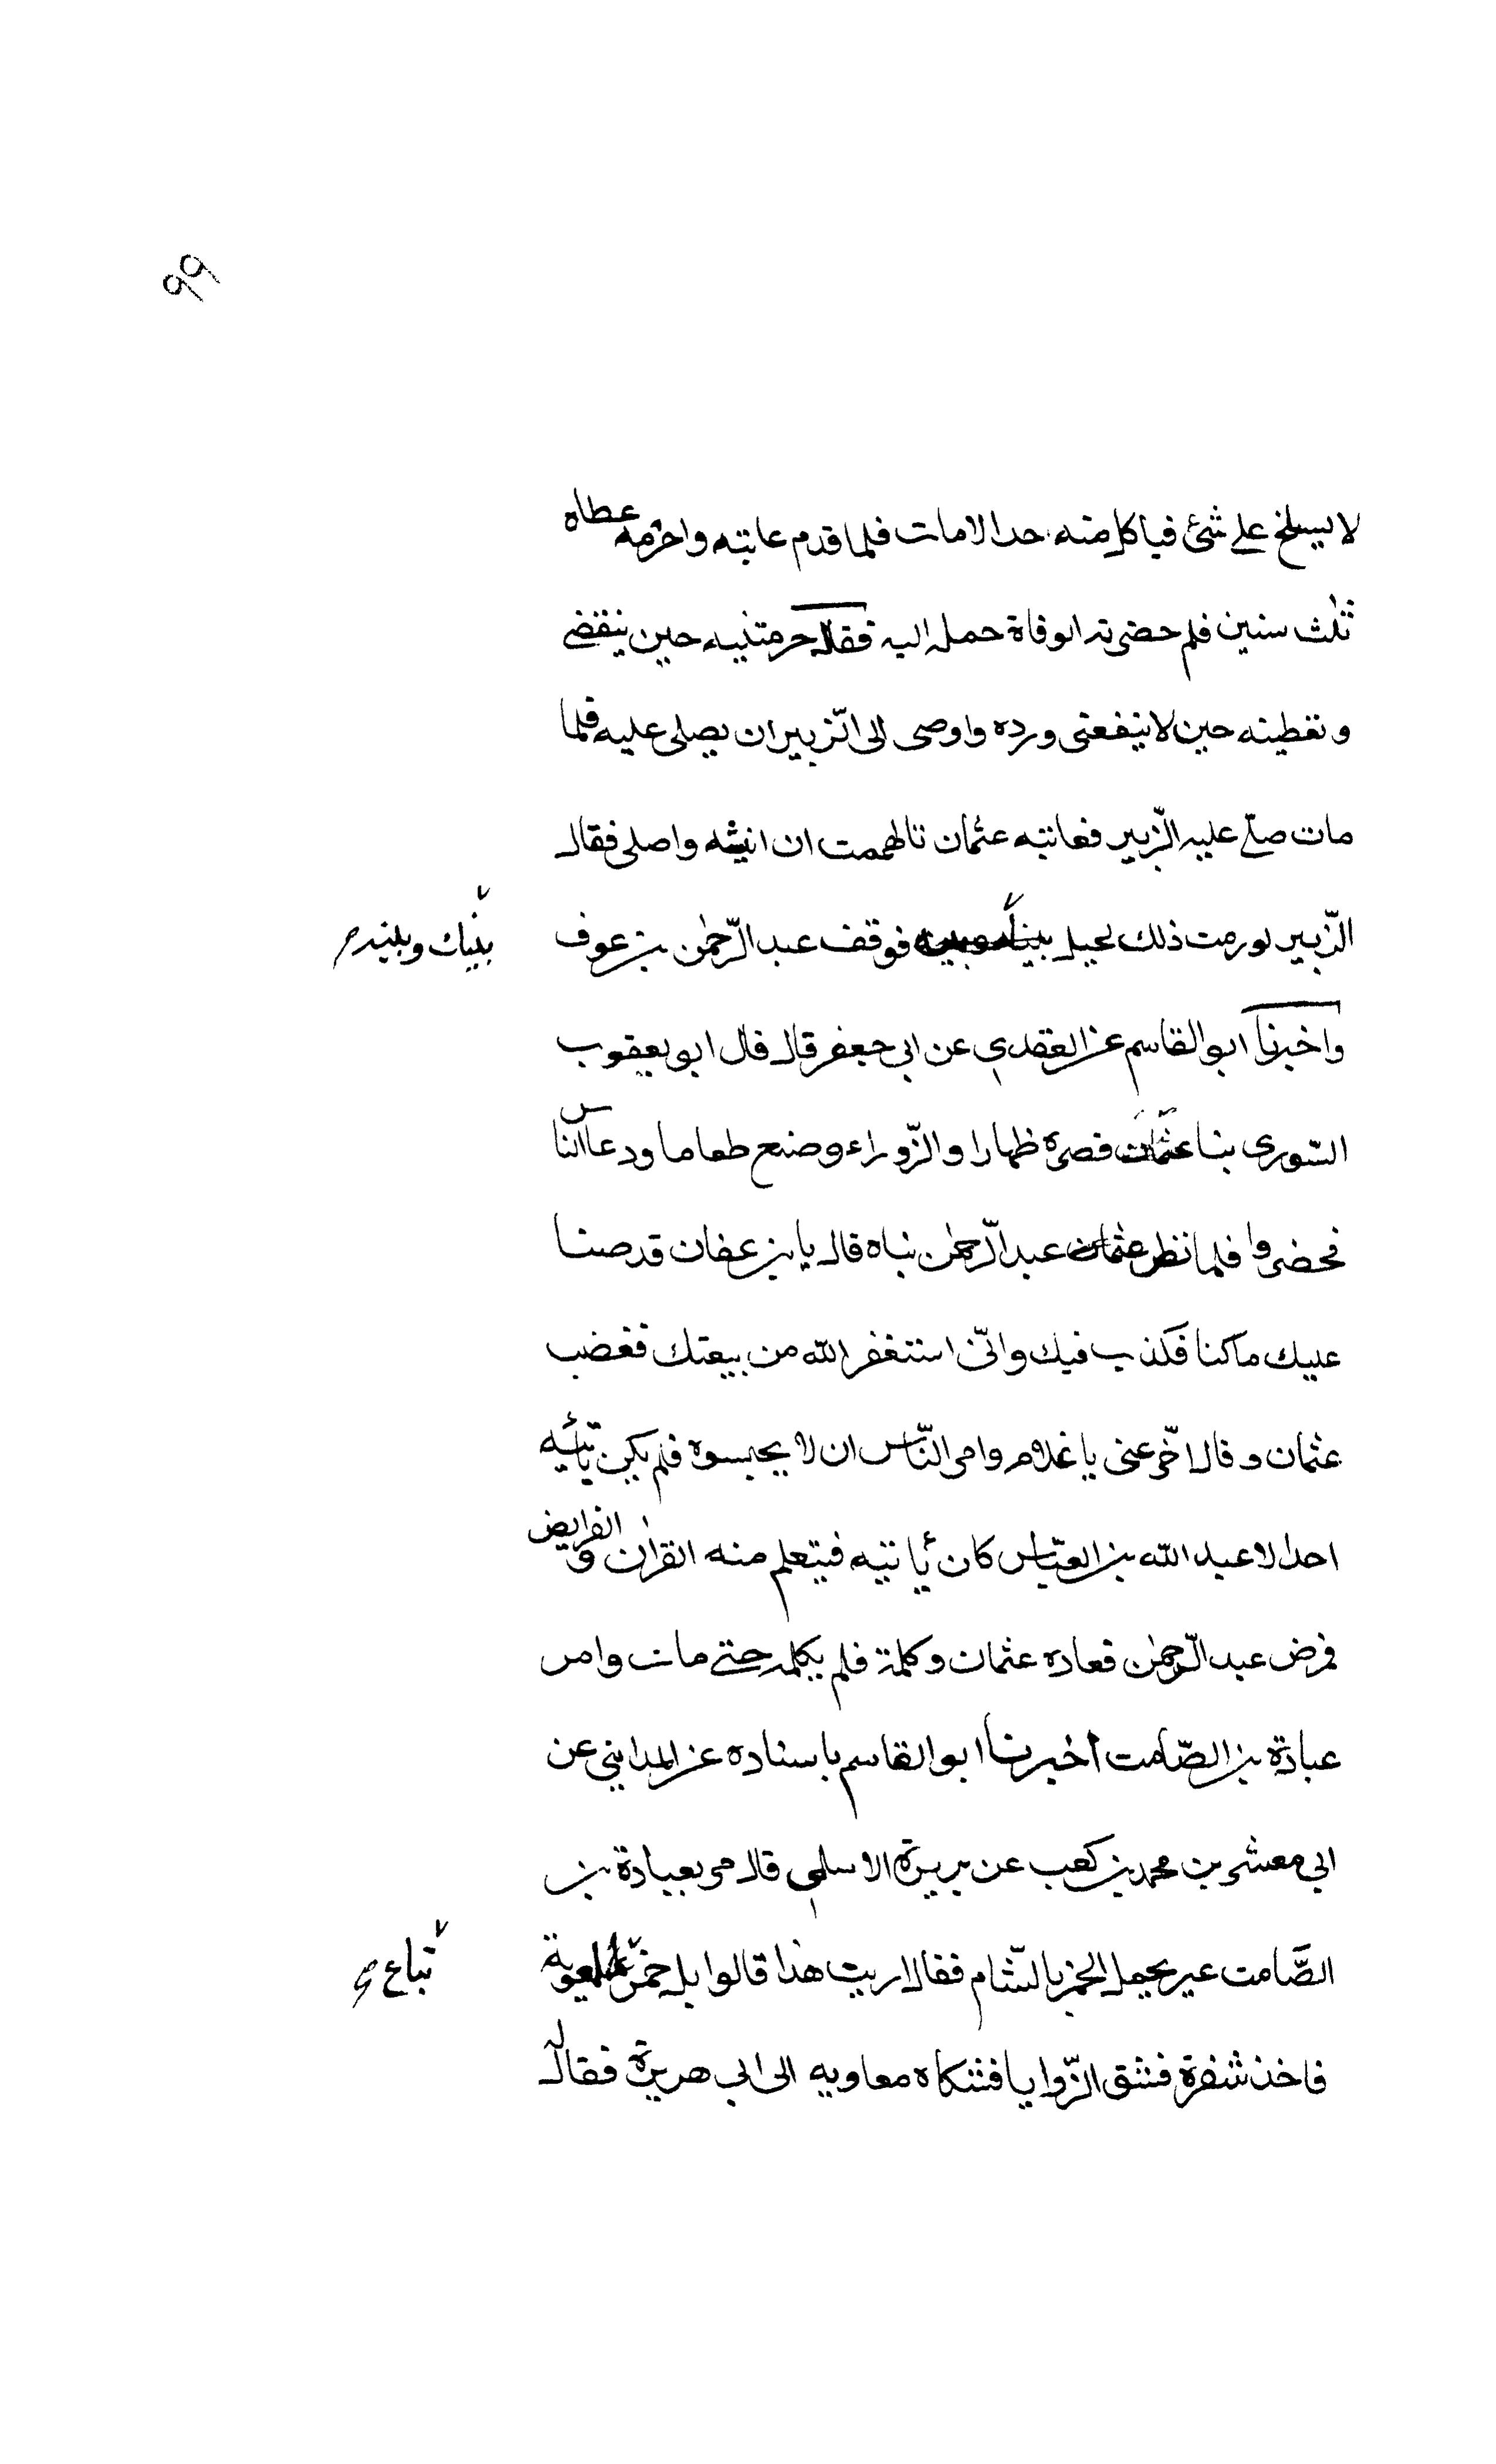 ٩٩
لا يسلخ على شئ فياكل منه احد الامات فلما قدم عاتبه واحرمه عطاه
ثلث سنين فلم حضرته الوفاة حمله اليه فقال حرمتنيه حين ينفعنى
وتعطينه حين لا ينفعنى ورده واوصى الى الزّبير ان يصلى عليه فلما
مات صلّى عليه الزّبير فعاتبه عثمان قال هممت ان انبشه واصلى فقال
الزّبير لو رمت ذلك لحيل فوقف عبد الرّحمٰن بن عوف
بينك وبينه م
واخبرنا ابو القاسم عن العقدى عن ابى جعفر قال قال ابو يعقوب
السّورى بنا عثمان قصره ظمارا والزّوراء وصنع طعاما ودعا النّاس
فحضروا فلما نظر عثمان عبد الرّحمٰن بناه قال يابن عفان قد صدقنا
عليك ماكنا فكذب فيك وانّى استغفر الله من بيعتك فغضب
عثمان وقال اخّره عنى يا غلام وامر النّاس ان لا يجلسوه فلم يكن يأتيه
احد الا عبد الله بن العبّاس كان يأتيه فيتعلم منه القرٰان والفرايض
فمرض عبد الرّحمٰن فعاده عثمان وكلمة فلم يكلمه حتى مات وامر
عبادة بن الصّامت اخبرنا ابو القاسم باسناده عن المداينى عن
ابى معشر بن محمد بن كعب عن بريرة الاسلمى قال مر بعبادة بن
الصّامت عير يحمل الخمر بالشّام فقال اريت هذا قالوا بل خمر لمعوية
تباع م
فاخذ شفرة فشق الزّوايا فشكاه معاويه الى ابى هريرة فقال له